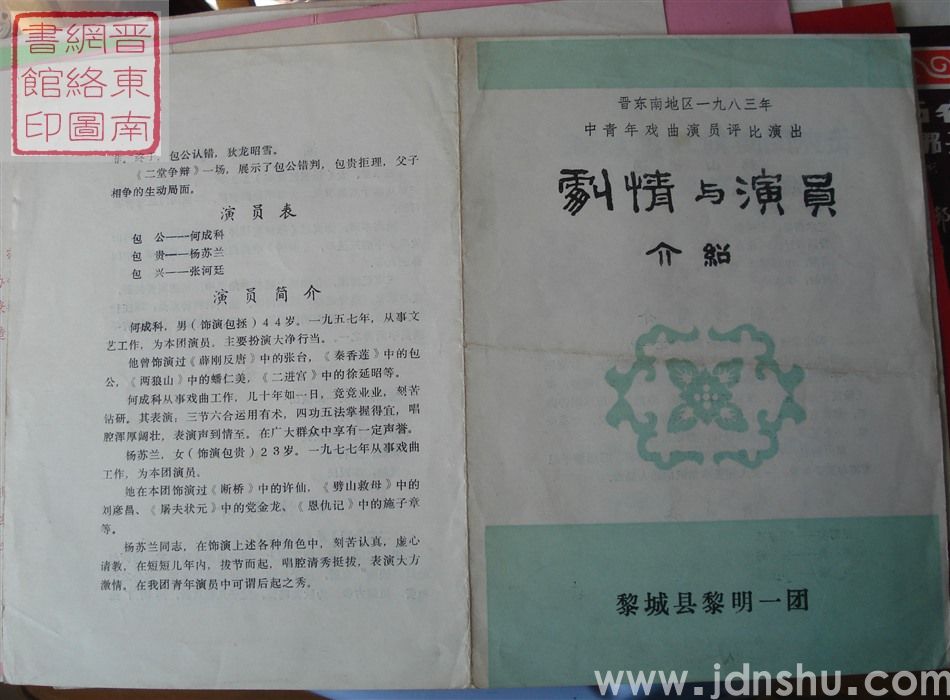 晋东南
网络图
書館印
甘。终了，包公认错，狄龙昭雪。
《二堂争辩》一场，展示了包公错判，包贵拒理，父子
相争的生动局面。
演员表
包 公——何成科
包 贵——杨苏兰
包 兴——张河廷
演员简介
何成科，男（饰演包拯）44岁。一九五七年，从事文
艺工作，为本团演员。主要扮演大净行当。
他曾饰演过《薛刚反唐》中的张台，《秦香莲》中的包
公，《两狼山》中的蟠仁美，《二进宫》中的徐延昭等。
何成科从事戏曲工作，几十年如一日，竞竞业业，刻苦
钻研。其表演：三节六合运用有术，四功五法掌握得宜，唱
腔浑厚阔壮，表演声到情至。在广大群众中享有一定声誉。
杨苏兰，女（饰演包贵）23岁。一九七七年从事戏曲
工作，为本团演员。
她在本团饰演过《断桥》中的许仙，《劈山救母》中的
刘彦昌、《屠夫状元》中的党金龙、《恩仇记》中的施子章
等。
杨苏兰同志，在饰演上述各种角色中，刻苦认真，虚心
请教，在短短几年内，拔节而起，唱腔清秀挺拔，表演大方
激情。在我团青年演员中可谓后起之秀。
晋东南地区一九八三年
中青年戏曲演员评比演出
劇情与演員
介紹
黎城县黎明一团
www.jdnshu.com